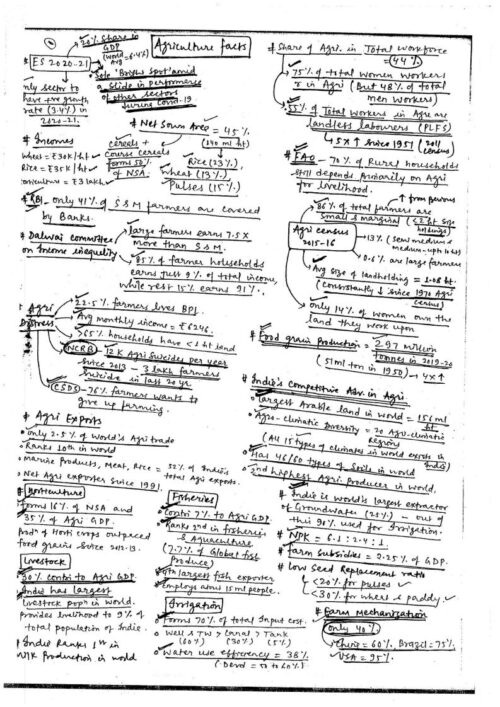 Agriculture facts
# ES 2020-21
20% share in
GDP
(world = 6.4%)
Avg
Sole 'Bright Spot' amid
a slide in performance
of other sectors
during covid-19
only sector to
have +ve growth
rate (3.4%) in
2020-21.
# Net Sown Area = 45%
(140 ml ht)
cereals +
Course cereals
forms 50%
of NSA.
Rice (23%),
wheat (13%)
Pulses (15%)
# Incomes
Wheat = ₹30K/ht
Rice = ₹35K/ht
Horticulture = ₹3 lakh
# RBI - only 41% of S&M farmers are covered
by Banks.
# Dalwai committee
on Income inequality
large farmers earns 7.5x
more than S&M.
85% of farmer households
earns just 9% of total income,
while rest 15% earns 91%.
# Agri
Distress
22.5% farmers lives BPL.
Avg monthly income = ₹6246.
>65% households have <1 ht land
NCRB - 12K Agri Suicides per year
since 2013 - 3 lakh farmers
suicide in last 20 yr.
CSDS - 76% farmers wants to
give up farming.
# Agri Exports
only 2.5% of world's Agri trade
Ranks 10th in world
Marine Products, Meat, Rice = 52% of India's
total Agri exports.
Net Agri exporter since 1991.
# Horticulture
Forms 16% of NSA and
35% of Agri GDP.
Prodn of Horti crops outpaced
food grains since 2012-13.
Livestock
30% contri to Agri GDP.
India has largest
livestock popn in world.
Provides livelihood to 9% of
total population of India.
India Ranks 1st in
Milk Production in world
Fisheries
Contri 7% to Agri GDP.
Ranks 2nd in fisheries
& Aquaculture
(7.7% of Global fish
Produce)
largest fish exporter
Employs about 15 ml people.
Irrigation
Forms 70% of total Input cost.
Well & TW > Canal > Tank
(60%) (30%) (5%)
Water use efficiency = 38%
(Devd = 50 to 60%)
# Share of Agri. in Total workforce
= (44%)
75% of total women workers
r in Agri (But 48% of total
men workers)
55% of Total workers in Agri are
landless labourers (PLFS)
5x ↑ since 1951 (2011
census)
# FAO - 70% of Rural households
still depends primarily on Agri
for livelihood.
↑ from previous
Agri census
2015-16
86% of total farmers are
Small & marginal (<2 ht size
holdings)
13% (semi medium &
medium - upto 10 ht)
0.6% are large farmers
Avg size of landholding = 1.08 ht
(consistently ↓ since 1970 Agri
census)
only 14% of women own the
land they work upon
# Food grain Production = 297 million
tonnes in 2019-20
(51 ml ton in 1950) → 4x ↑
# India's Competitive Adv. in Agri.
largest Arable land in world = 156 ml
ht
Agro-climatic Diversity = 20 Agro-climatic
regions
(All 15 types of climates in world exists in
India)
Has 46/60 types of Soils in world
2nd highest Agri Producer in world.
# India is world's largest extractor
of Groundwater (25%) - out of
this 90% used for Irrigation.
# NPK = 6.1 : 2.4 : 1.
# Farm Subsidies = 2.25% of GDP.
# Low Seed Replacement ratio
<20% for pulses
<30% for wheat & paddy
# Farm Mechanisation
only 40%
China = 60%, Brazil = 75%
USA = 95%.